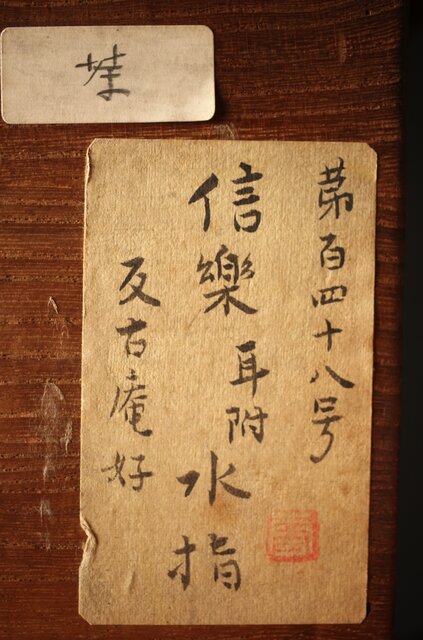 第百四十八号
信樂耳附水指
反古庵好